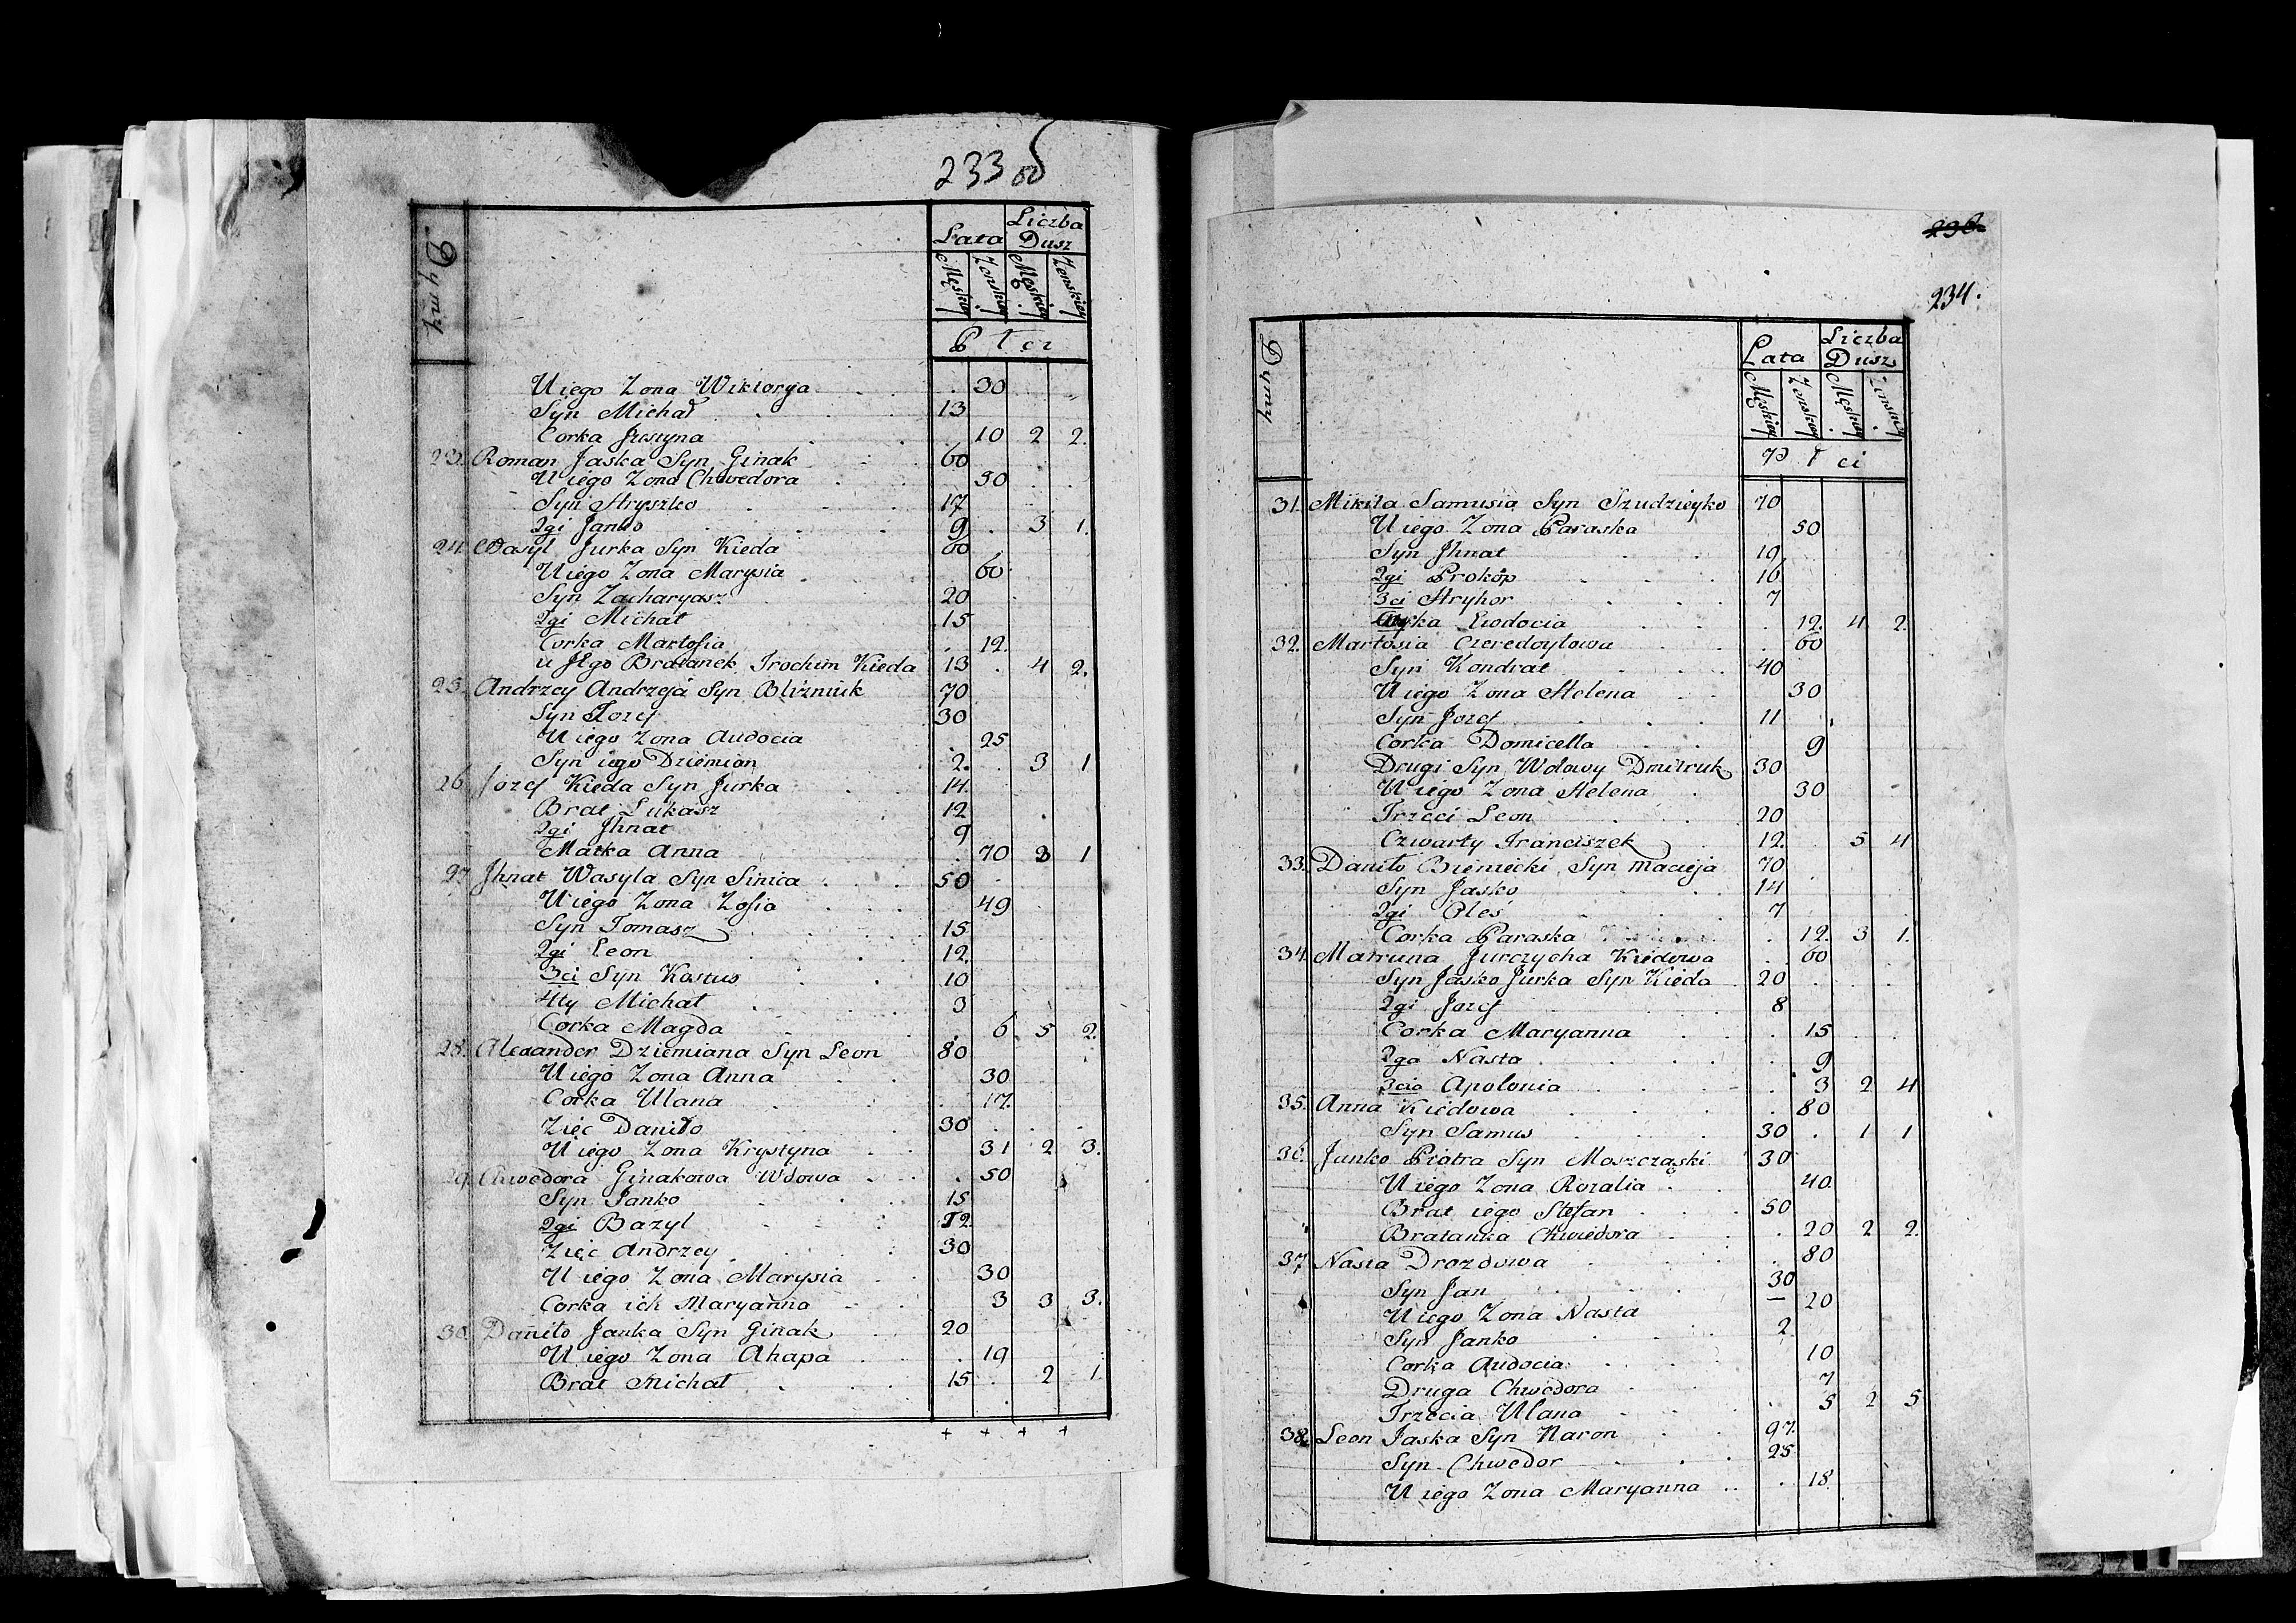 233 об
Dymy
Lata
Liczba Dusz
Męskiey Żenskiey Męskiey Żenskiey
Płci
U iego Zona Wiktorya 30
Syn Michał 13
Corka Justyna 10 2 2.
23. Roman Jaska Syn Ginak 60
U iego Zona Chwedora 50
Syn Hryszko 17
2gi Janko 9 3 1.
24. Wasyl Jurka Syn Kieda 60
U iego Zona Marysia 60
Syn Zacharyasz 20
2gi Michał 15
Corka Martosia 12.
u Jego Bratanek Trochim Kieda 13 4 2.
25. Andrzey Andrzeja Syn Blizniuk 70
Syn Jozef 30
U iego Zona Audocia 25
Syn iego Dziemian 2. 3 1
26. Jozef Kieda Syn Jurka 14.
Brat Łukasz 12
2gi Jhnat 9
Matka Anna 70 3 1
27. Jhnat Wasyla Syn Sinica 50
U iego Zona Zofia 49
Syn Tomasz 15
2gi Leon 12.
3ci Syn Kastus 10
4ty Michał 3
Corka Magda 6 5 2.
28. Alexander Dziemiana Syn Leon 80
U iego Zona Anna 30
Corka Ulana 17.
Zięc Daniło 30
U iego Zona Krystyna 31 2 3.
29. Chwedora Ginakowa Wdowa 50
Syn Janko 15
2gi Bazyl 12
Zięc Andrzey 30
U iego Zona Marysia 30
Corka ich Maryanna 3 3 3.
30. Daniło Janka Syn Ginak 20
U iego Zona Ahapa 19
Brat Michał 15 2 1
+ + + +
234.
Dymy
Lata
Liczba Dusz
Męskiey Żenskiey Męskiey Żenskiey
Płci
31. Mikita Samusia Syn Szudzieyko 70
U iego Zona Paraska 50
Syn Jhnat 19
2gi Prokop 16
3ci Hryhor 7
Corka Ewdocia 12. 4 2.
32. Martosia Czeredoytowa 60
Syn Kondrat 40
U iego Zona Helena 30
Syn Jozef 11
Corka Domicella 9
Drugi Syn Wdowy Dmitruk 30
U iego Zona Helena 30
Trzeci Leon 20
Czwarty Franciszek 12. 5 4
33. Daniło Bieniecki Syn Macieja 70
Syn Jasko 14
2gi Oleś 7
Corka Paraska 12. 3 1.
34. Matruna Jurczycha Kiedowa 60
Syn Jasko Jurka Syn Kieda 20
2gi Jozef 8
Corka Maryanna 15
2ga Nasta 9
3cia Apolonia 3 2 4
35. Anna Kiedowa 80
Syn Samus 30 1 1
36. Janko Piotra Syn Moszcząski 30
U iego Zona Rozalia 40
Brat iego Stefan 50
Bratanka Chwiedora 20 2 2.
37 Nasta Drozdowa 80
Syn Jan 30
U iego Zona Nasta 20
Syn Janko 2.
Corka Audocia 10
Druga Chwedora 7
Trzecia Ulana 5 2 5
38. Leon Jaska Syn Naron 97.
Syn Chwedor 25
U iego Zona Maryanna 18